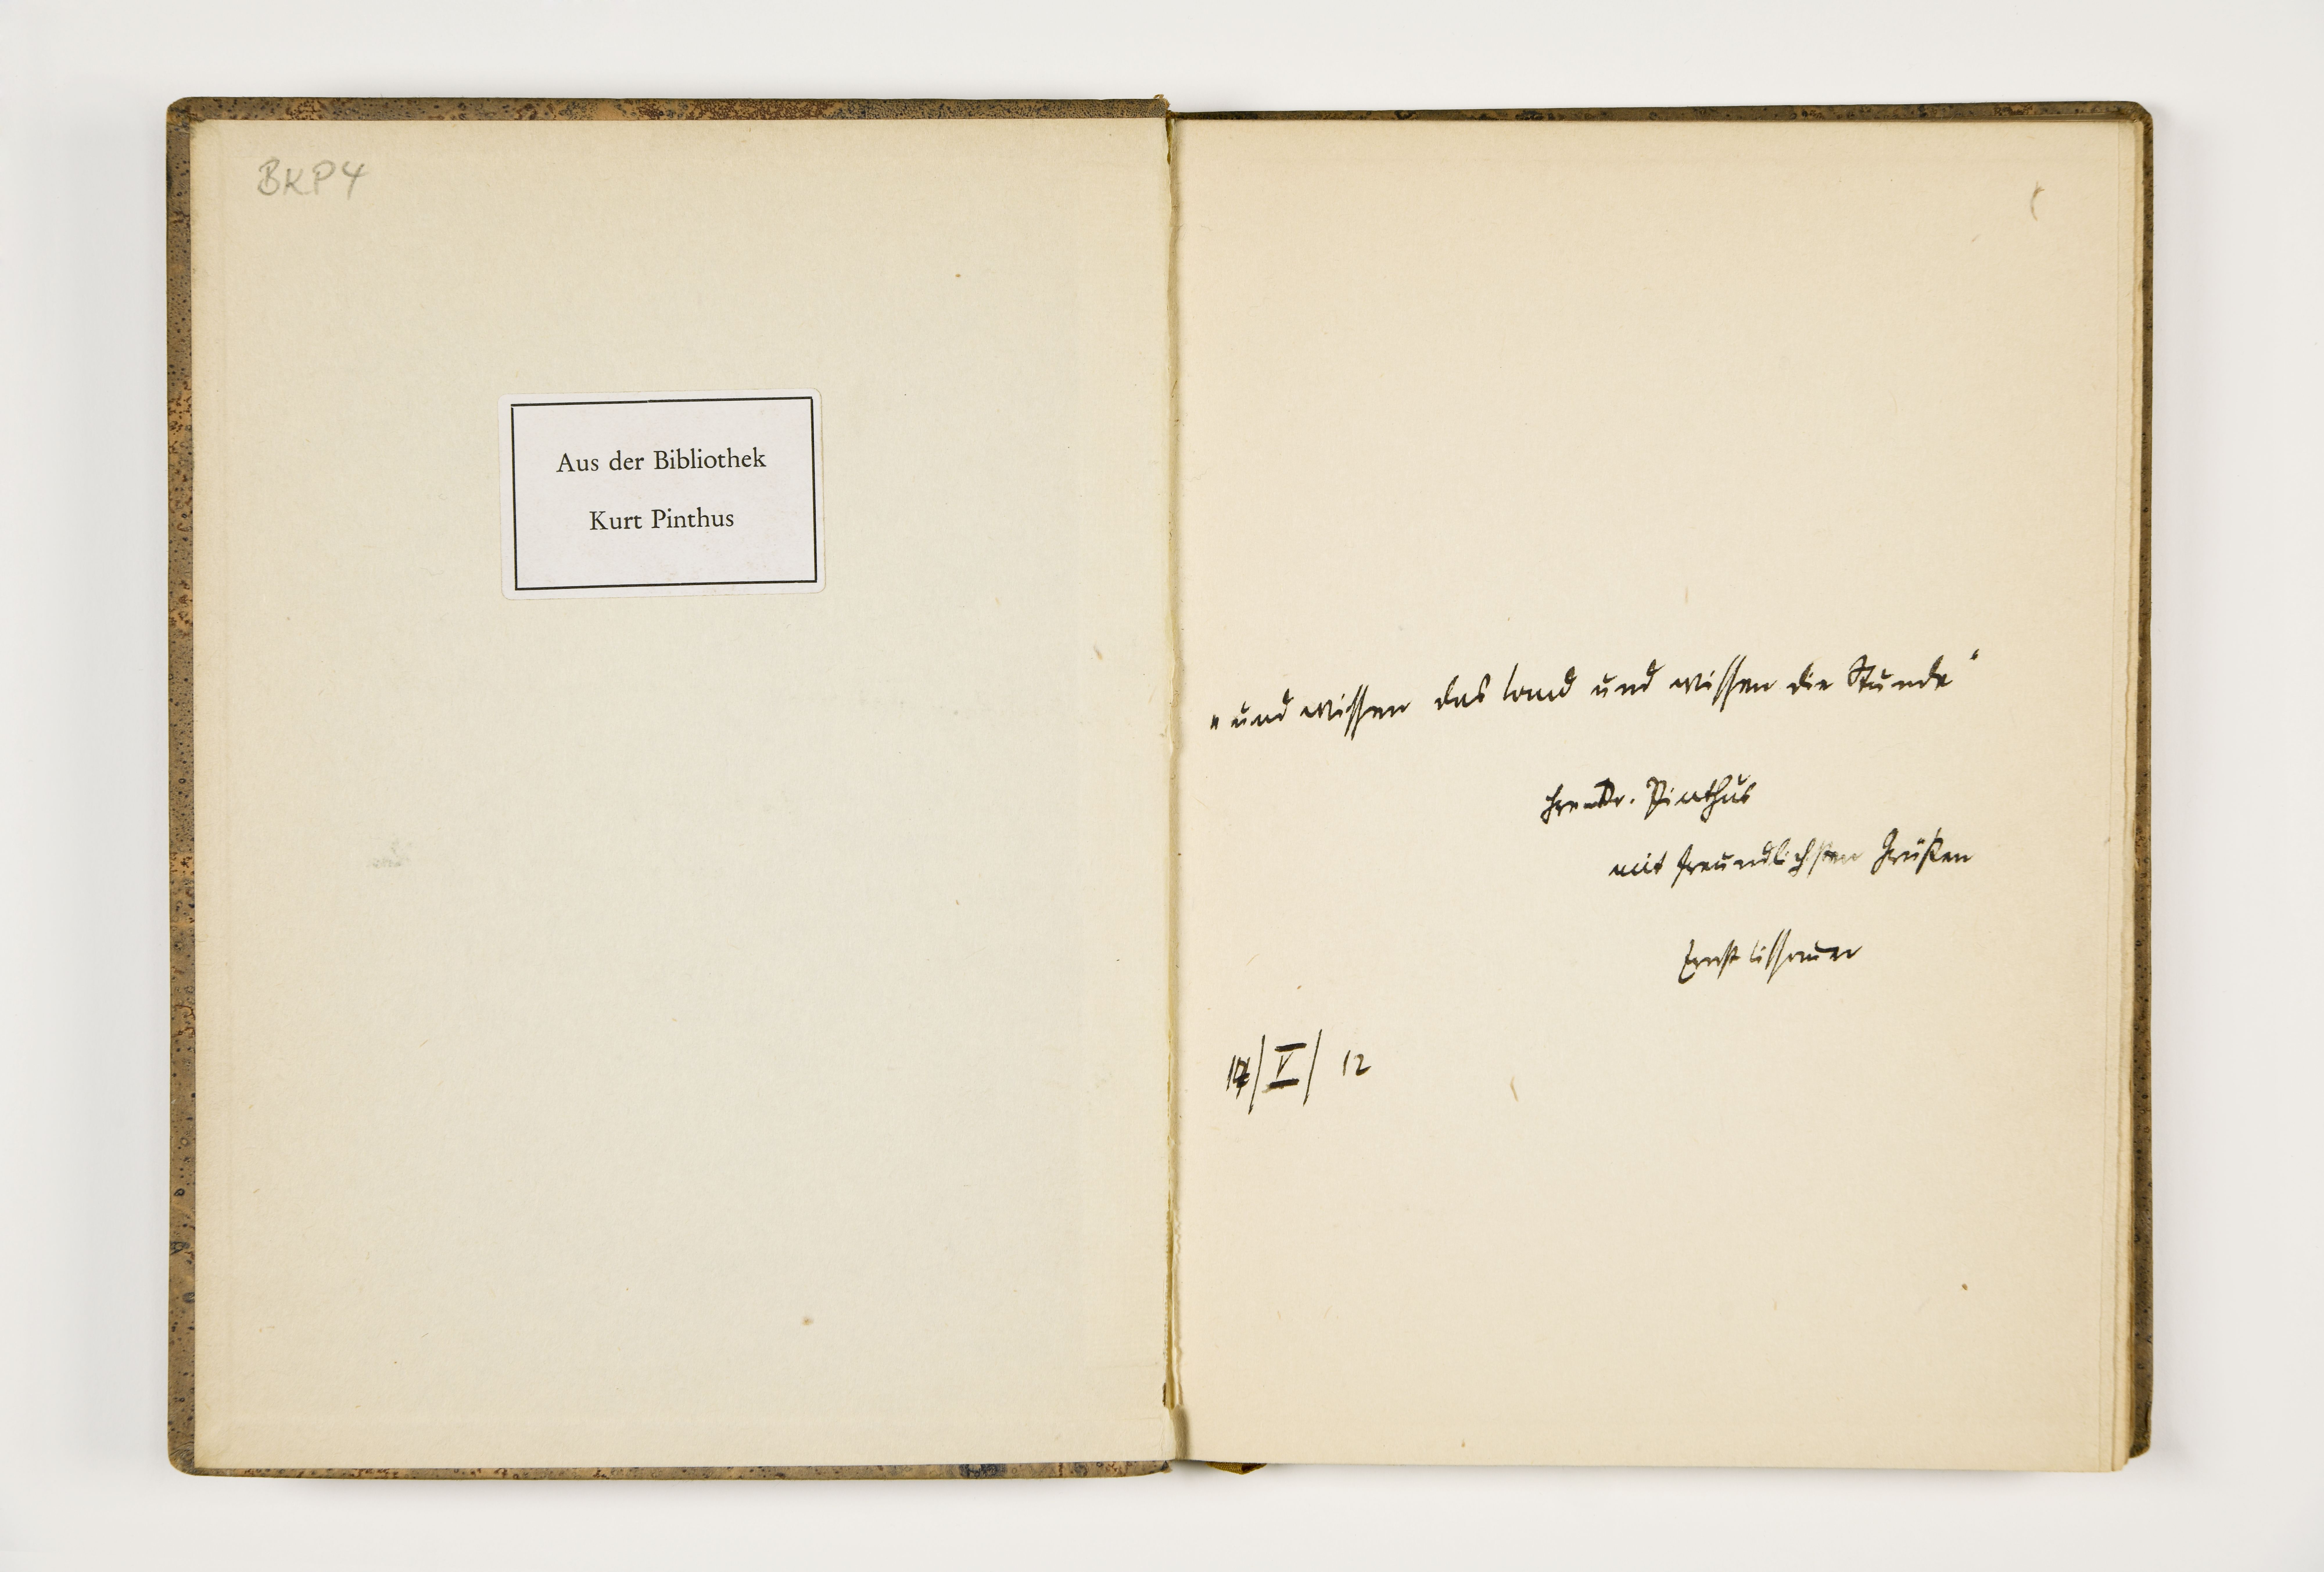 BKP4
Aus der Bibliothek
Kurt Pinthus
„und wissen das Land und wissen die Stunde“
Herrn Dr. Pinthus
mit freundlichsten Grüßen
Ernst Lissauer
/V/ 12